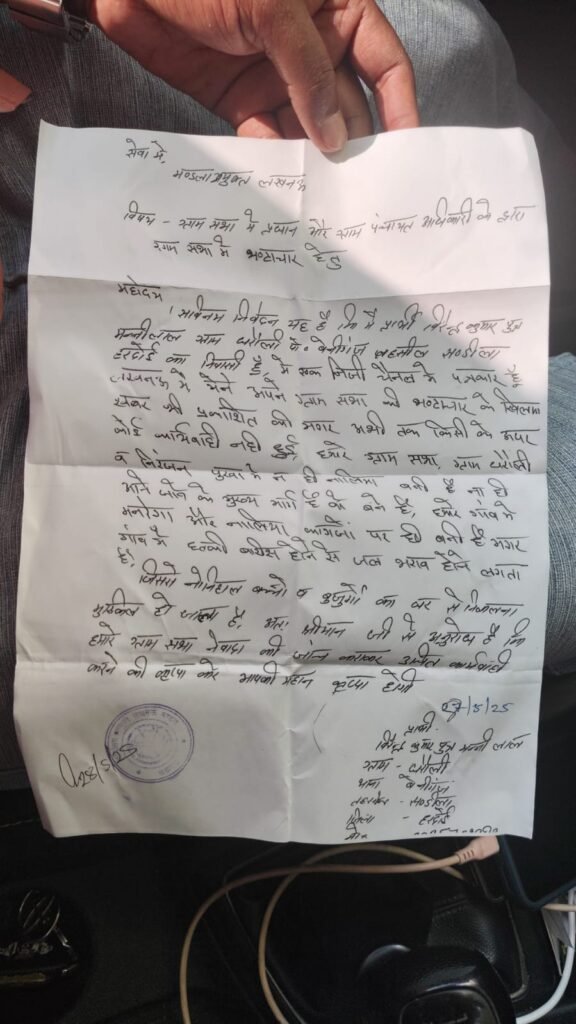 सेवा में,
मण्डलाआयुक्त लखनऊ
विषय - ग्राम सभा में प्रधान और ग्राम पंचायत अधिकारी के द्वारा
ग्राम सभा में भ्रष्टाचार हेतु
महोदय
सविनय निवेदन यह है कि मैं प्रार्थी कुमार पुत्र
मन्नीलाल ग्राम धौली पो. बेनीगंज तहसील सण्डीला
हरदोई का निवासी है, मैं एक निजी चैनल में पत्रकार हूँ
लखनऊ में मैंने अपने ग्राम सभा की भ्रष्टाचार के खिलाफ
खबर की प्रकाशित की मगर अभी तक किसी के ऊपर
कोई कार्यवाही नहीं हुई हमारे ग्राम सभा, ग्राम धौली
व निरंजन में न ही नालिया बनी है ना ही
आने जाने के मुख्य मार्ग है वो बने है, हमारे गांव में
मनरेगा और नालिया कागजों पर ही बनी है मगर
गांव में हल्की बारिश होने से जल भराव होने लगता
है,
जिससे नौनिहाल बच्चो व बुजुर्गों का घर से निकलना
मुश्किल हो जाता है, अतः श्रीमान जी से अनुरोध है कि
हमारे ग्राम सभा नेवादा की जांच कराकर उचित कार्यवाही
करने की कृपा करे आपकी महान कृपा होगी
27/5/25
प्रार्थी.
कुमार पुत्र मन्नी लाल
ग्राम - धौली
थाना - बेनीगंज
तहसील - सण्डीला
जिला - हरदोई
मो०
28/5/25